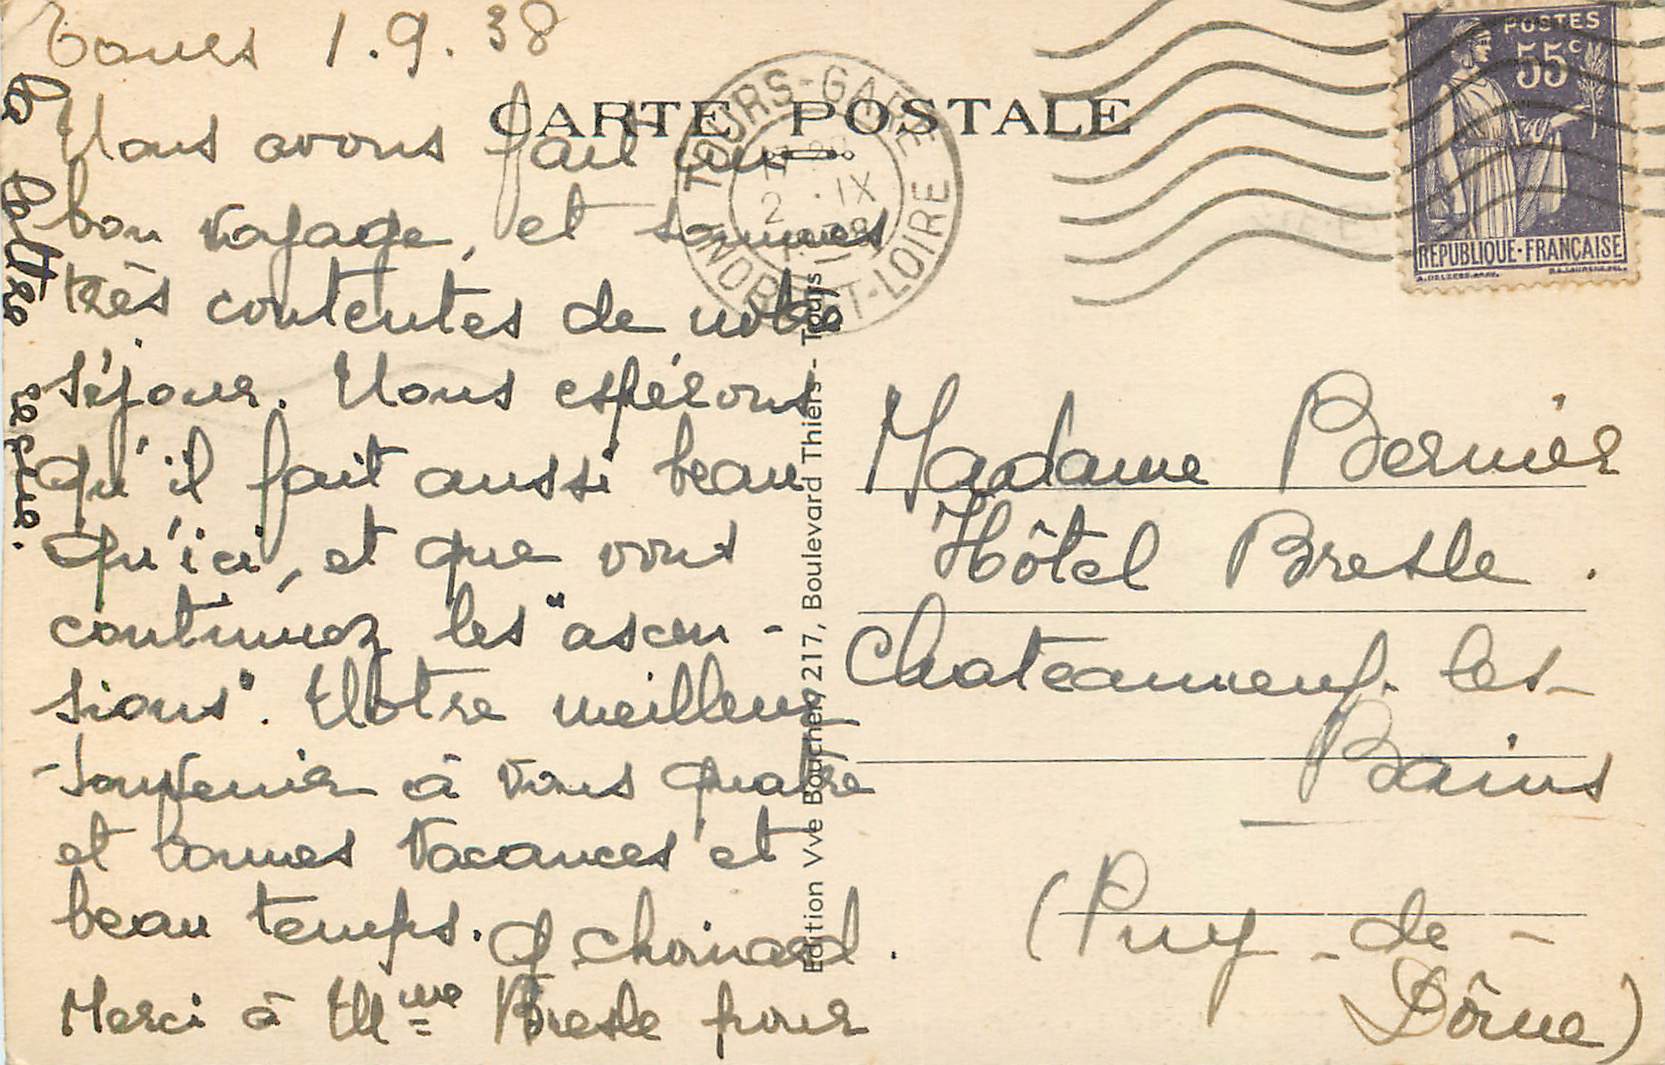 Tours 1.9.38
Nous avons fait un
bon voyage, et sommes
très contentes de notre
séjour. Nous espérons
qu'il fait aussi beau
qu'ici, et que vous
continuez les "ascen-
sions". Notre meilleur
souvenir à vous quatre
et bonnes vacances et
beau temps. Chouard.
Merci à Mme Bresle pour
la lettre reçue.
CARTE POSTALE
TOURS-GARE
2 ·IX
INDRE-ET-LOIRE
POSTES
55c
REPUBLIQUE·FRANÇAISE
Edition Vve Boucher, 217, Boulevard Thiers - Tours
Madame Bernier
Hôtel Bresle.
Chateauneuf-les-
Bains
(Puy-de-
Dôme)